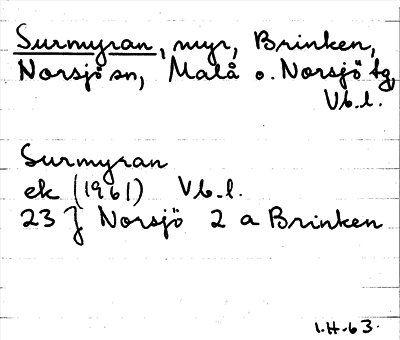 Surmyran, myr, Brinken,
Norsjö sn, Malå o. Norsjö tg,
Vb. l.
Surmyran
ek (1961) Vb. l.
23 } Norsjö 2 a Brinken
I.H-63.